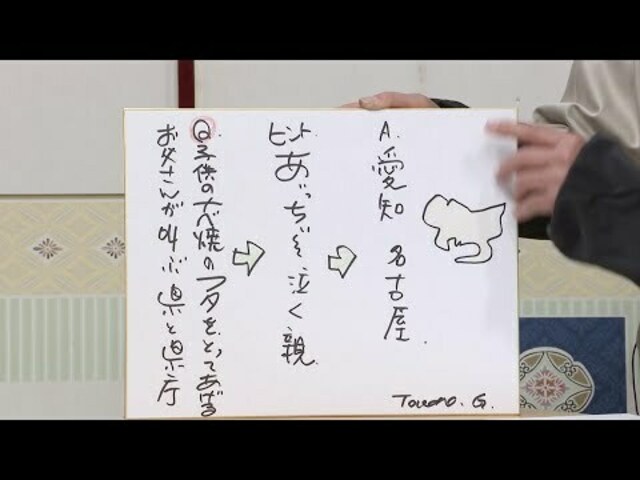 Q.子供の焼のフタをとってあげる
お父さんが叫ぶ県と県庁
ヒント.
あっちぃ泣く親.
A.
愛知 名古屋.
G.